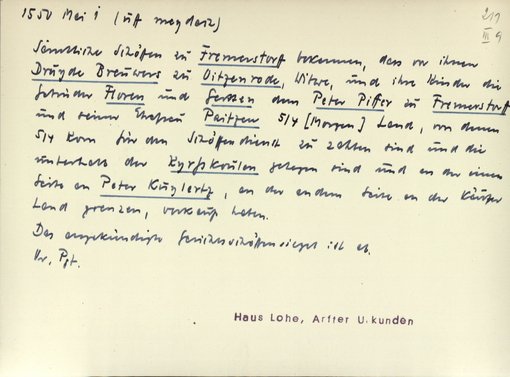 1550 Mai 1 (uff meydach)
211
III 9
Sämtliche Schöffen zu Fremerstorff bekennen, dass vor ihnen
Druyde Breuwers zu Oitzenrode, Witwe, und ihre Kinder die
Gebrüder Floren und Gertzen dem Peter Piffer zu Fremerstorff
und seiner Ehefrau Paitzen 5/4 [Morgen] Land, von denen
5/4 Korn für den Schöffendienst zu zahlen sind und die
unterhalb der Kyrßkoulen gelegen sind und an der einen
Seite an Peter Kuylertz, an der andern Seite an der Käufer
Land grenzen, verkauft haben.
Das angekündigte Gerichtsschöffensiegel ist ab.
Or. Pgt.
Haus Lohe, Arfter U.kunden